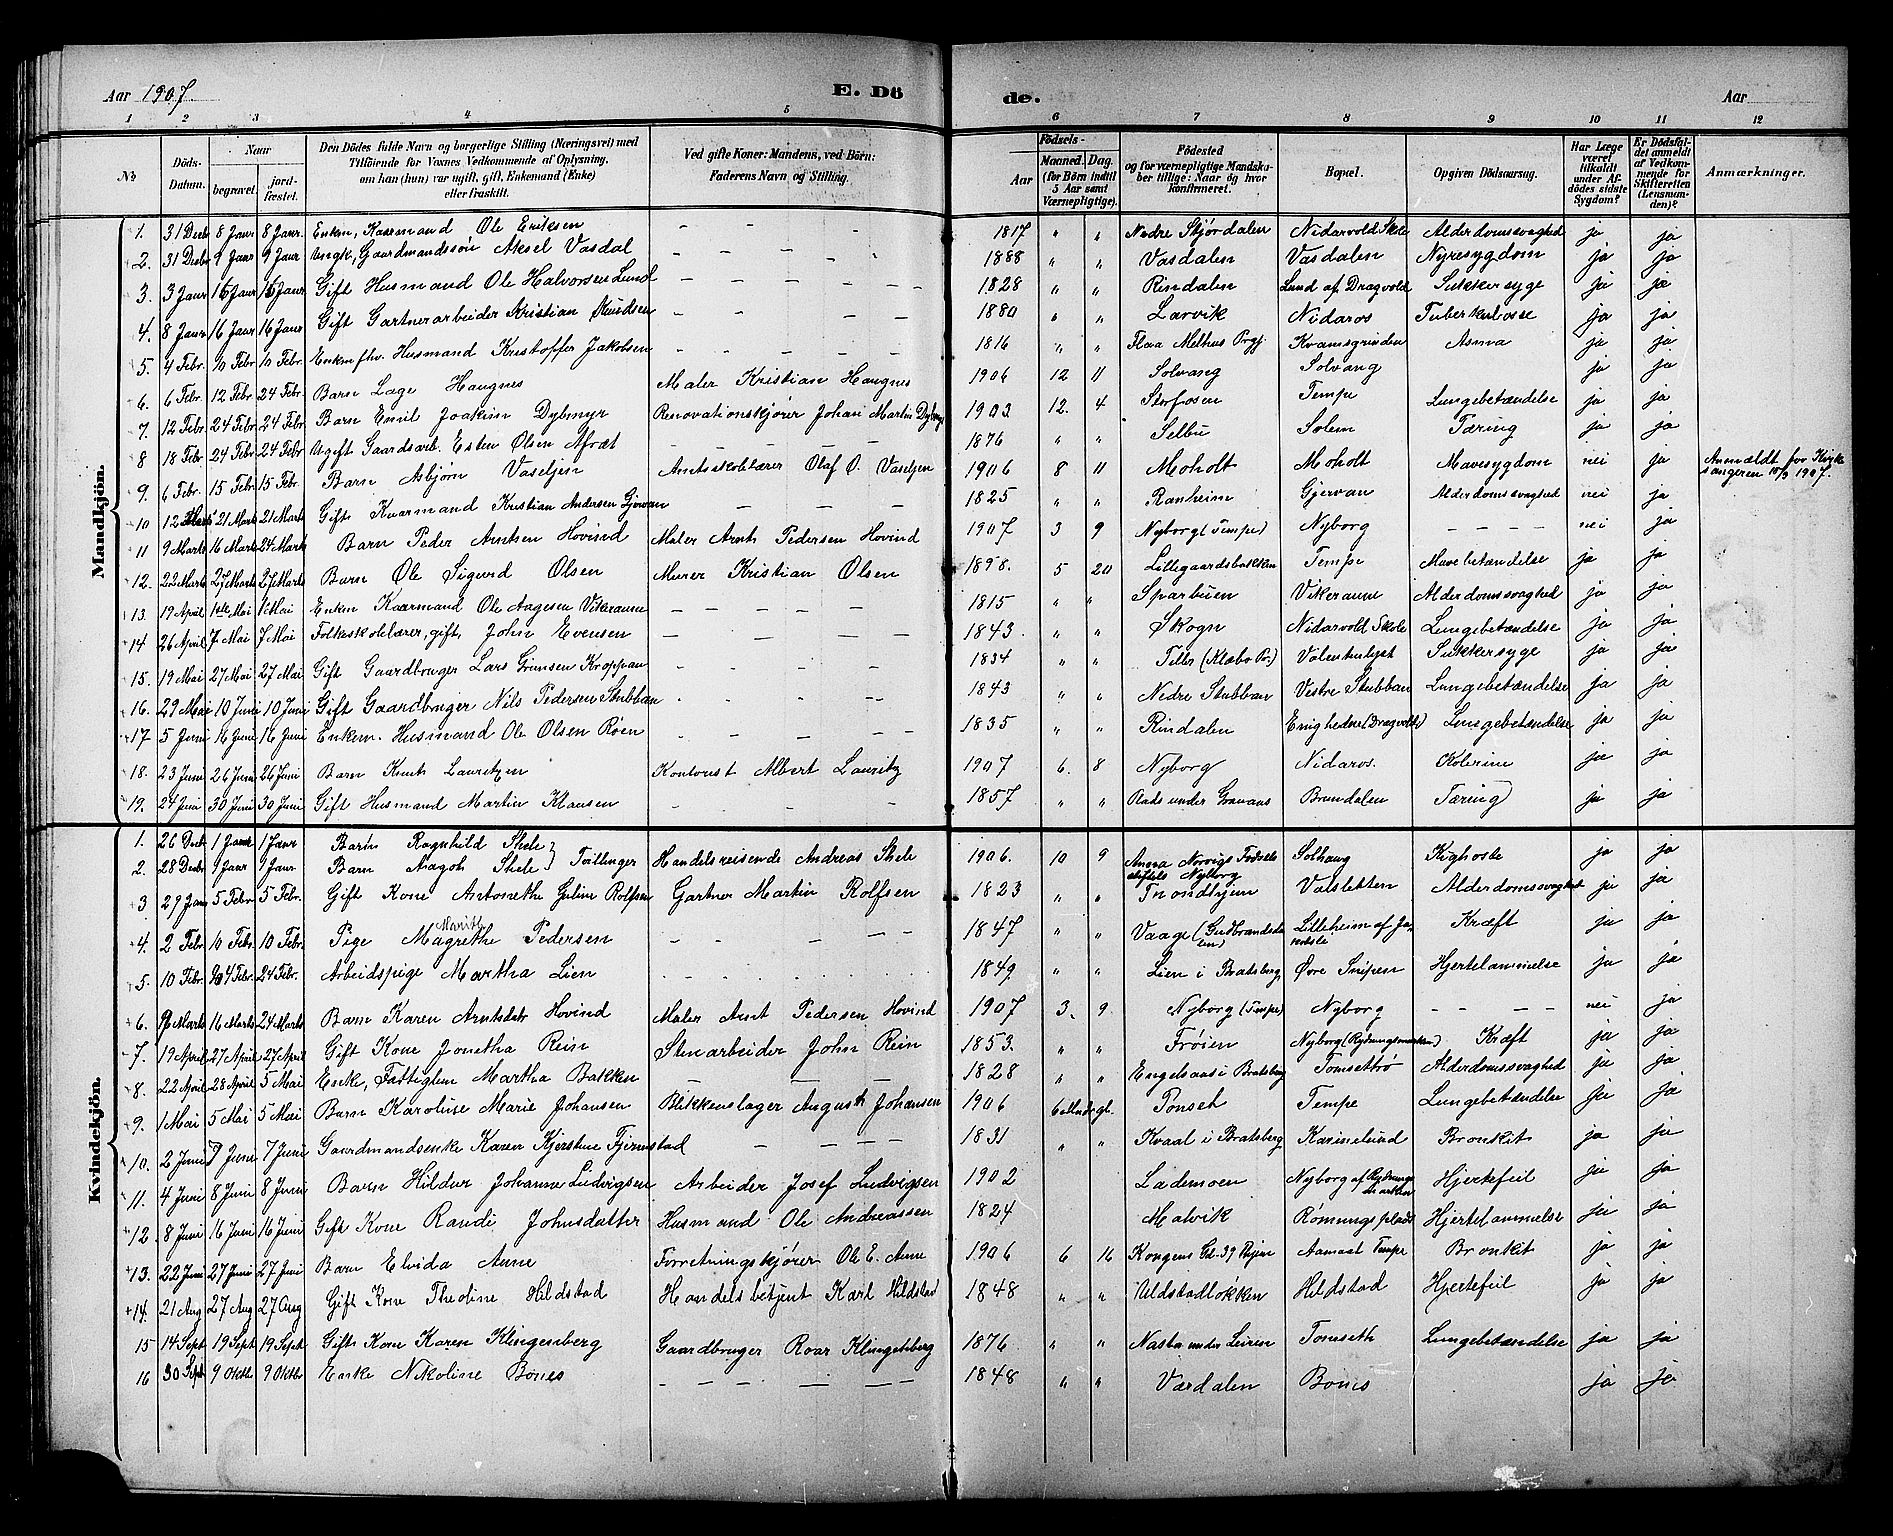 Aar 1907.
E. Dö
de.
Aar
1 2 3 4 5 6 7 8 9 10 11 12
No
Döds-Datum.
Naar
begravet.
jord-fæstet.
Den Dödes fulde Navn og borgerlige Stilling (Næringsvei) med
Tilföiende for Voxnes Vedkommende af Oplysning,
om han (hun) var ugift, gift, Enkemand (Enke)
eller fraskilt.
Ved gifte Koner: Mandens, ved Börn:
Faderens Navn og Stilling.
Födsels-
Aar
Maaned. Dag.
(for Börn indtil
5 Aar samt
Værnepligtige).
Födested
og for værnepligtige Mandska-
ber tillige: Naar og hvor
konfirmeret.
Bopæl.
Opgiven Dödsaarsag.
Har Læge
været
tilkaldt
under Af-
dödes sidste
Sygdom?
Er Dödsfal-
det anmeldt
af Vedkom-
mende for
Skifteretten
(Lensman-
den)?
Anmærkninger.
Mandkjön.
1. 31 Decb 8 Janr 8 Janr. Enkm, Kaarmand Ole Eriksen – – – – 1817 " " Nedre Stjørdalen Nidarvold Skole Alderdomssvaghed ja ja
2. 31 Decbr 9 Janr 9 Janr Ungk, Gaardmandssøn Aksel Vasdal – – – – 1888 " " Vasdalen Vasdalen Nyresygdom ja ja
3. 3 Janr 16 Janr 16 Janr. Gift Husmand Ole Halvorsen Lund – – – – 1828 " " Rindalen Lund af Dragvold Sukkersyge ja ja
4. 8 Janr 16 Janr 16 Janr. Gift Gartnerarbeider Kristian Knudsen – – – – 1880 " " Larvik Nidaros Tuberkulose ja ja
5. 4 Febr. 10 Febr 10 Febr. Enkm fhv. Husmand Kristoffer Jakobsen – – – – 1816 " " Flaa Melhus Prgj. Kvamsgrinden Asma ja ja
6. 6 Febr. 12 Febr 24 Febr. Barn Lage Haugnes Maler Kristian Haugnes 1906 12 11 Solvang Solvang ja ja
7. 12 Febr. 24 Febr. 24 Febr. Barn Emil Joakim Dybmyr Renovationskjører Johan Martin Dybmyr 1903. 12. 4 Storfosen Tempe Lungebetændelse ja ja
8 18 Febr. 24 Febr. 24 Febr Ugift Gaardsarb. Esten Olsen Afræt – – – – 1876 " " Selbu Solem Tæring ja ja
9. 6 Febr. 15 Febr. 15 Febr. Barn Asbjørn Vaseljen Amtsskolelærer Olaf O. Vaseljen 1906 8 11 Moholt Moholt Mavesygdom nei ja Anmældt for Kirke
sangeren 10/3 1907.
10 12 Marts 21 Marts 21 Marts Gift Kaarmand Kristian Andersen Gjervan – – – – 1825 " " Ranheim Gjervan Alderdomssvaghed nei ja
11 9 Marts 16 Marts 24 Marts Barn Peder Arntsen Hovind Maler Arnt Pedersen Hovind 1907 3 9 Nyborg (Tempe) Nyborg – – – – nei ja
12. 22 Marts 27 Marts 27 Marts Barn Ole Sigurd Olsen Murer Kristian Olsen 1898. 5 20 Lillegaardsbakken Tempe Mavebetændelse ja ja
13. 19 April 1ste Mai 1ste Mai Enkm Kaarmand Ole Aagesen Vikeraunen – – – – 1815 " " Sparbuen Vikeraune Alderdomssvaghed ja ja
14 26 April 7 Mai 7 Mai Folkeskolelærer, gift, John Evensen – – – – 1843. " " Skogn Nidarvold Skole Lungebetændelse ja ja
15. 19 Mai 27 Mai 27 Mai Gift Gaardbruger Lars Kroppan – – – – 1834 " " Tiller (Klæbo Pr.) Valentinlyst Sukkersyge ja ja
16. 29 Mai 10 Juni 10 Juni Gift Gaardbruger Nils Pedersen Stubban – – – – 1843 " " Nedre Stubban Vestre Stubban Lungebetændelse ja ja
17 5 Juni 16 Juni 16 Juni Enkem. Husmand Ole Olsen Røen – – – – 1835 " " Rindalen Enigheden (Dragvold) Lungebetændelse ja ja
18. 23 Juni 26 Juni 26 Juni Barn Knut Lauritzen Kontorist Albert Lauritz 1907 6. 8 Nyborg Nidaros. Kolerine ja ja
19. 24 Juni 30 Juni 30 Juni Gift Husmand Martin Klausen – – – 1857 " " under Granaas Brundalen Tæring ja ja
Kvindekjön.
1. 26 Decb 1 Janr 1 Janr Barn Ragnhild Skele
2. 28 Decbr 9 Janr 9 Janr. Barn Aagoth Skele } Tvillinger Handelsreisende Andreas Skele 1906. 10 9 Anna Norvigs Fødsels
stiftels Nyborg Solhaug Kighoste ja ja
3 29 Janr 5 Febr. 5 Febr. Gift Kone Antonette Guline Rolfsen Gartner Martin Rolfsen 1823 " " Trondhjem Valsletten Alderdomssvaghed ja ja
4. 2 Febr 10 Febr. 10 Febr. Pige Marit Magrethe Pedersen – – – – 1847 " " Vaage (Gudbrandsda
len) Lilleheim af Ja
Kræft ja ja
5. 10 Febr. 24 Febr. 24 Febr. Arbeidspige Martha Lien 1849. " " Lien i Bratsberg Øvre Sneipen Hjertelammelse ja ja
6. 9 Marts 16 Marts 24 Marts Barn Karen Arntsdatr Hovind Maler Arnt Pedersen Hovind 1907 3. 9. Nyborg (Tempe) Nyborg – – – – nei ja
7. 19 April 27 April 27 April Gift Kone Jonetha Rein Stenarbeider John Rein 1853. " " Frøien Nyborg (Rydningsmarken) Kræft ja ja
8. 22 April 28 April 5 Mai Enke, Fattiglem Martha Bakken – – – 1828 " " Engelsaas i Bratsberg Tomsettrø Alderdomssvaghed ja ja
9. 1 Mai 5 Mai 5 Mai Barn Karoline Marie Johansen Blikkenslager August Johansen 1906 6 Mndr gl. Ponset Tempe Lungebetændelse ja ja
10. 2 Juni 7 Juni 7 Juni Gaardmandsenke Karen Kjerstine Fjerrestad – – – – 1831 " " Kvaal i Bratsberg Karinelund Bronkit ja ja
11. 4 Juni 8 Juni 8 Juni Barn Hildur Johanne Ludvigsen Arbeider Josef Ludvigsen 1902 Lademoen Nyborg af Rydnings
marken Hjertefeil ja ja
12. 8 Juni 16 Juni 16 Juni Gift Kone Randi Johnsdatter Husmand Ole Andreassen 1824 Malvik Rømningsplads Hjertelammelse ja ja
13. 22 Juni 27 Juni 27 Juni Barn Elvida Aune Forretningskjører Ole E. Aune 1906 6 16 Kongens Gd. 39 Thjem Aamaat Tempe Bronkit ja ja
14. 21 Aug 27 Aug 27 Aug Gift Kone Theoline Hildstad Handelsbetjent Karl Hildstad 1848 " " Uldstadløkken Hildstad Hjertefeil ja ja
15 14 Sept 19 Sept 19 Sept Gift Kone Karen Klingenberg Gaardbruger Roar Klingenberg 1876 " " Nasta under Leiren Tomseth Lungebetændelse ja ja
16 30 Sept 9 Oktbr 9 Oktbr Enke Nikoline Bones – – – – 1848 " " Værdalen Bones ja ja